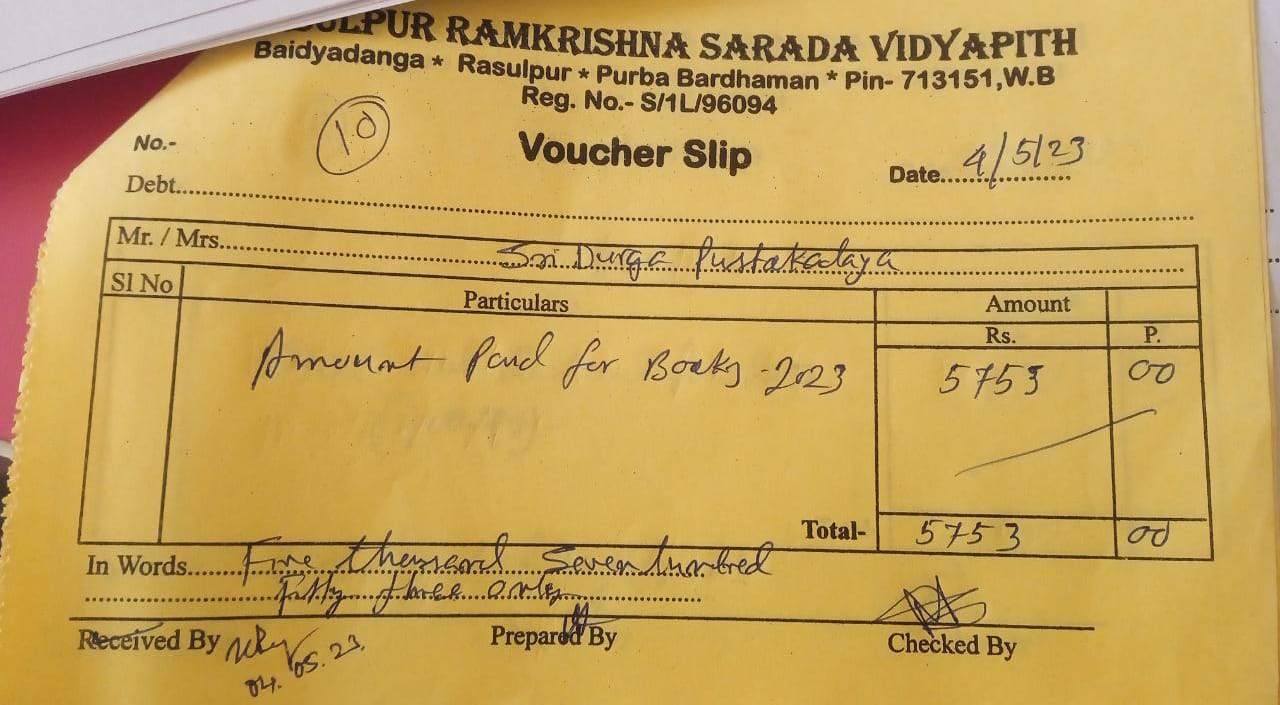 SULPUR RAMKRISHNA SARADA VIDYAPITH
Baidyadanga * Rasulpur * Purba Bardhaman * Pin- 713151,W.B
Reg. No.- S/1L/96094
No.- 10
Voucher Slip
Date....4/5/23
Debt
Mr. / Mrs. Sri Durga Pustakalaya
Sl No Particulars Amount
Rs. P.
Amount Paid for Books - 2023 5753 00
Total- 5753 00
In Words Five thousand Seven hundred
Fifty three only
Received By Prepared By Checked By
04.05.23.